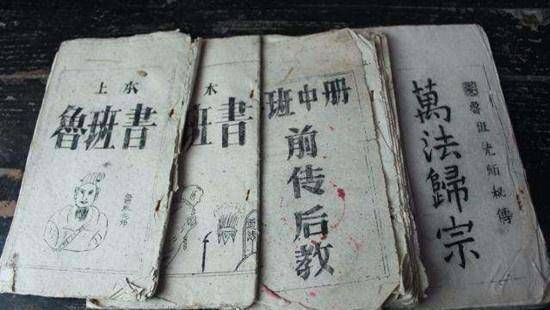 上本
魯班書
本
班書
班中册
前传后教
魯班先師秘傳
萬法歸宗